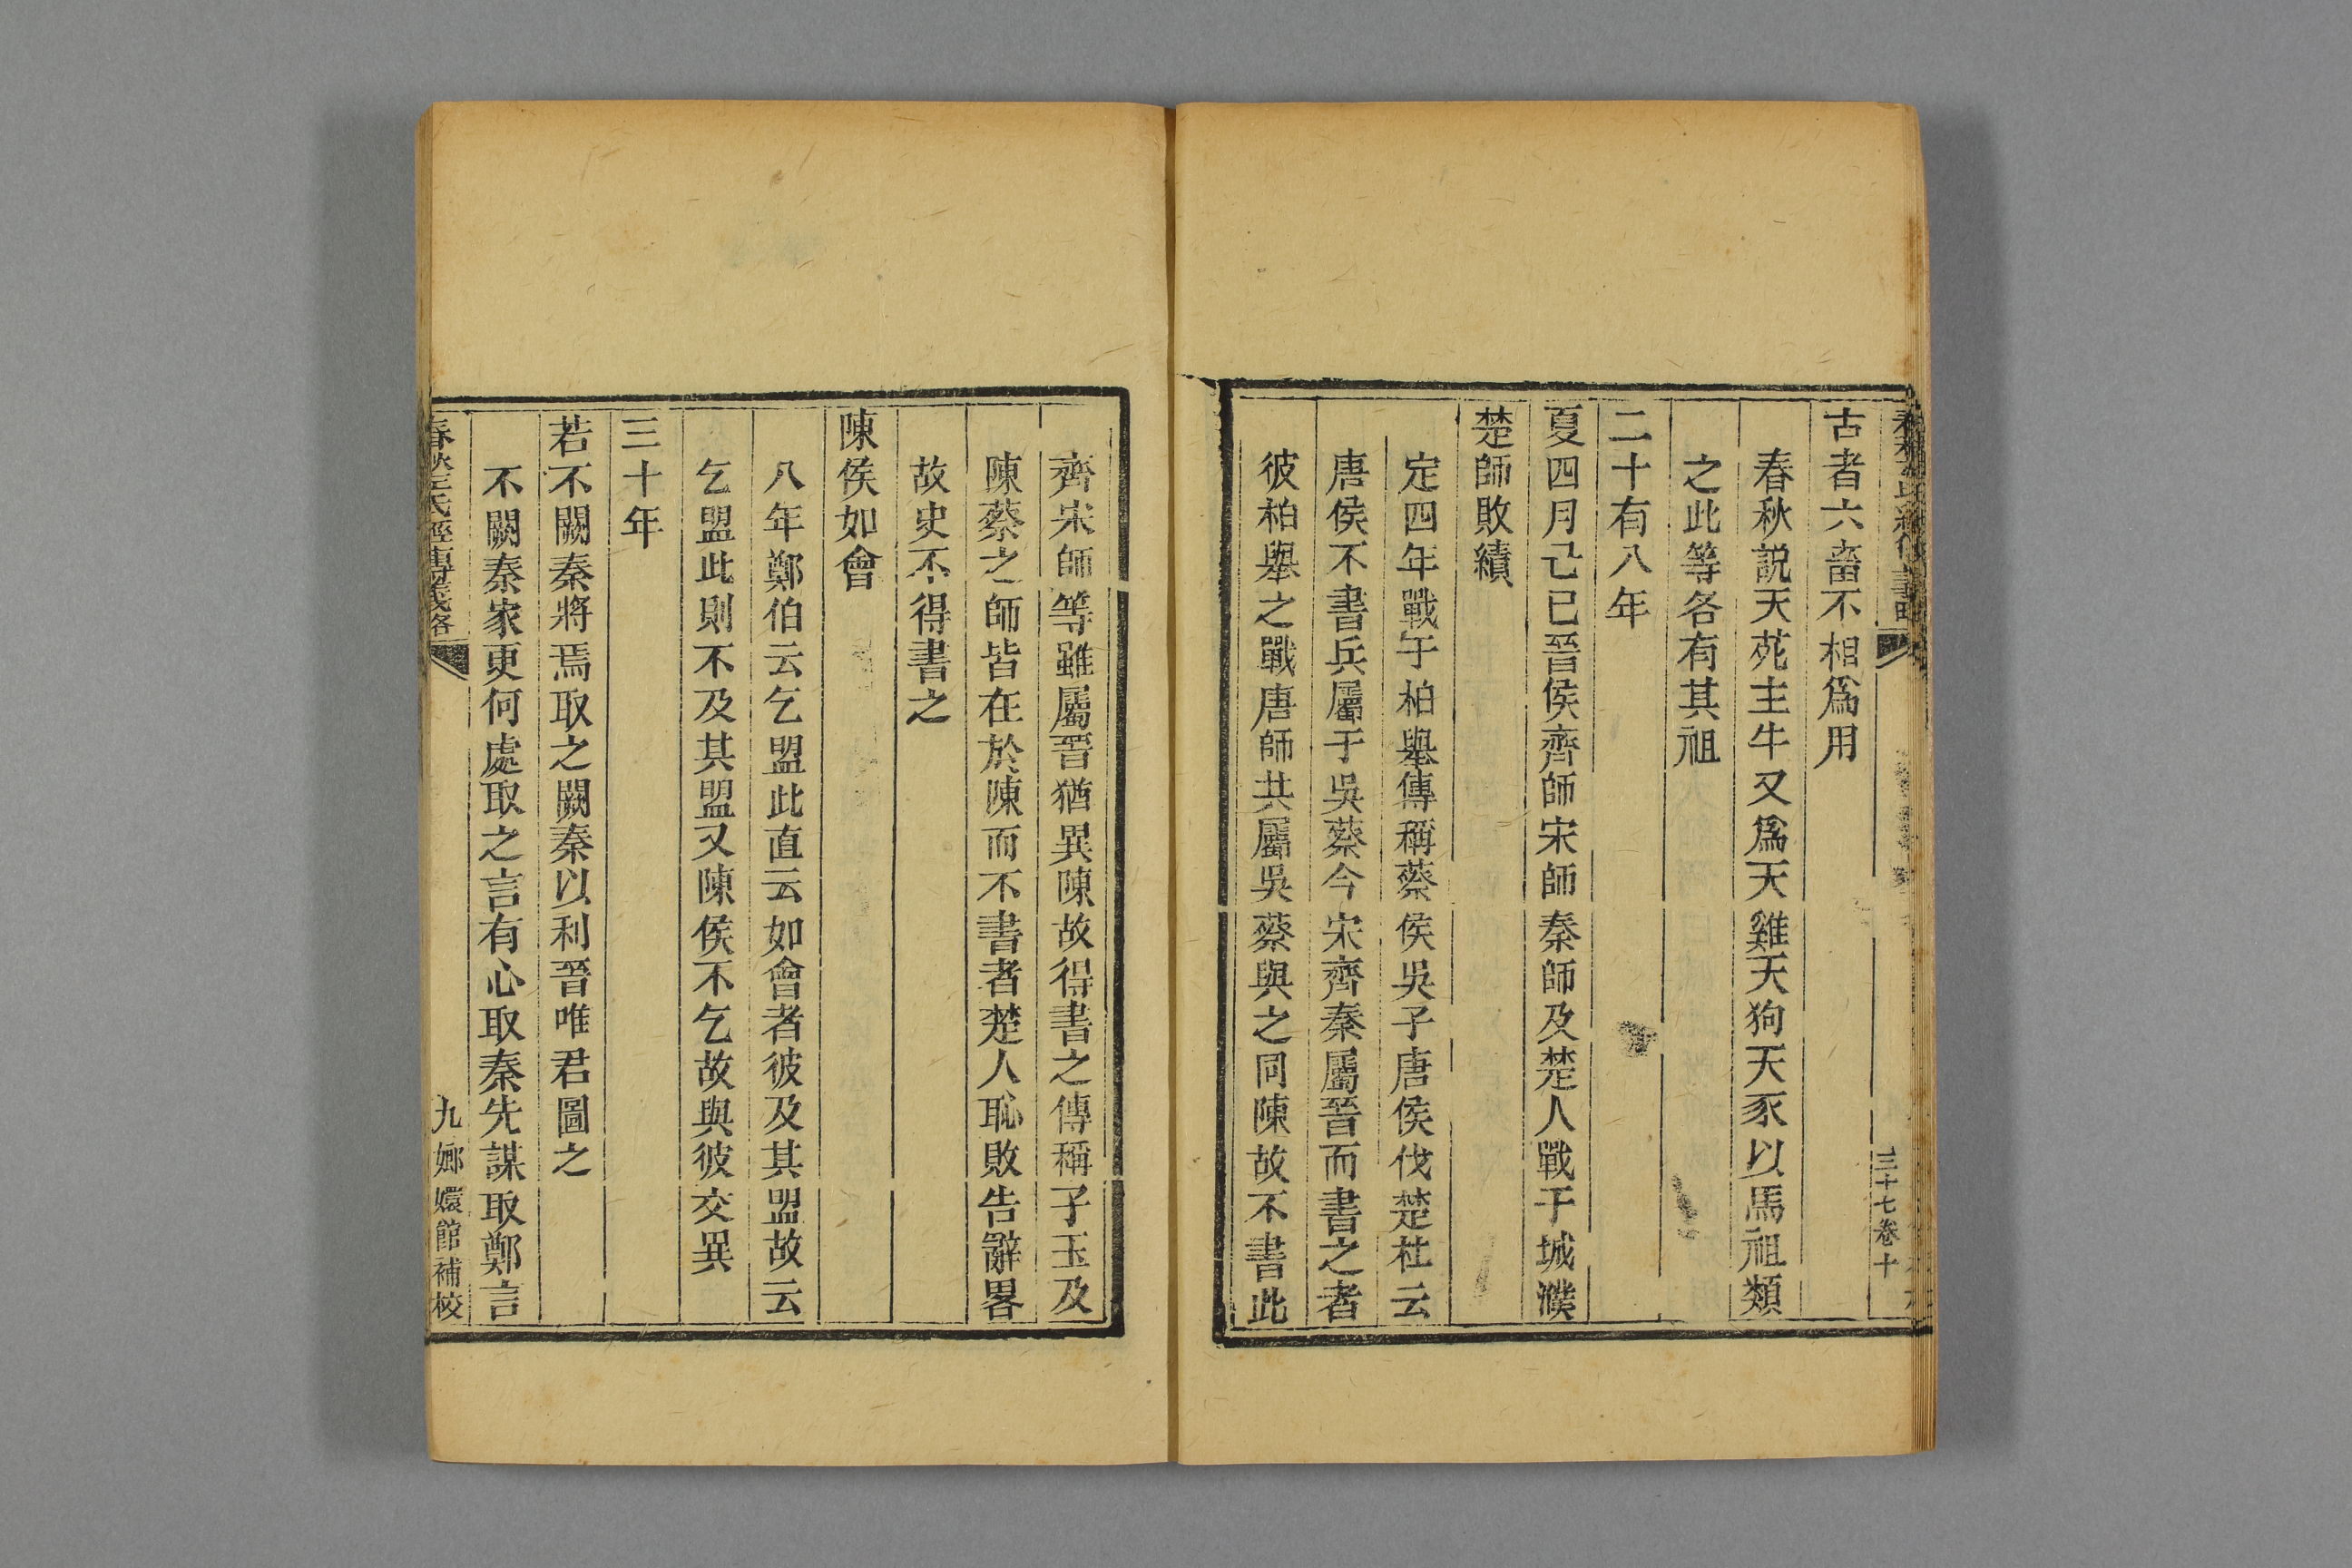 三十七卷十
古者六畜不相爲用
春秋説天苑主牛又爲天雞天狗天豕以馬祖類
之此等各有其祖
二十有八年
夏四月己巳晉侯齊師宋師秦師及楚人戰于城濮
楚師敗績
定四年戰于柏舉傳稱蔡侯吳子唐侯伐楚杜云
唐侯不書兵屬于吳蔡今宋齊秦屬晉而書之者
彼柏舉之戰唐師共屬吳蔡與之同陳故不書此
齊宋師等雖屬晉猶異陳故得書之傳稱子玉及
陳蔡之師皆在於陳而不書者楚人恥敗告辭畧
故史不得書之
陳侯如會
八年鄭伯云乞盟此直云如會者彼及其盟故云
乞盟此則不及其盟又陳侯不乞故與彼交異
三十年
若不闕秦將焉取之闕秦以利晉唯君圖之
不闕秦家更何處取之言有心取秦先謀取鄭言
春秋左氏經傳義略 九 嫏嬛館補校